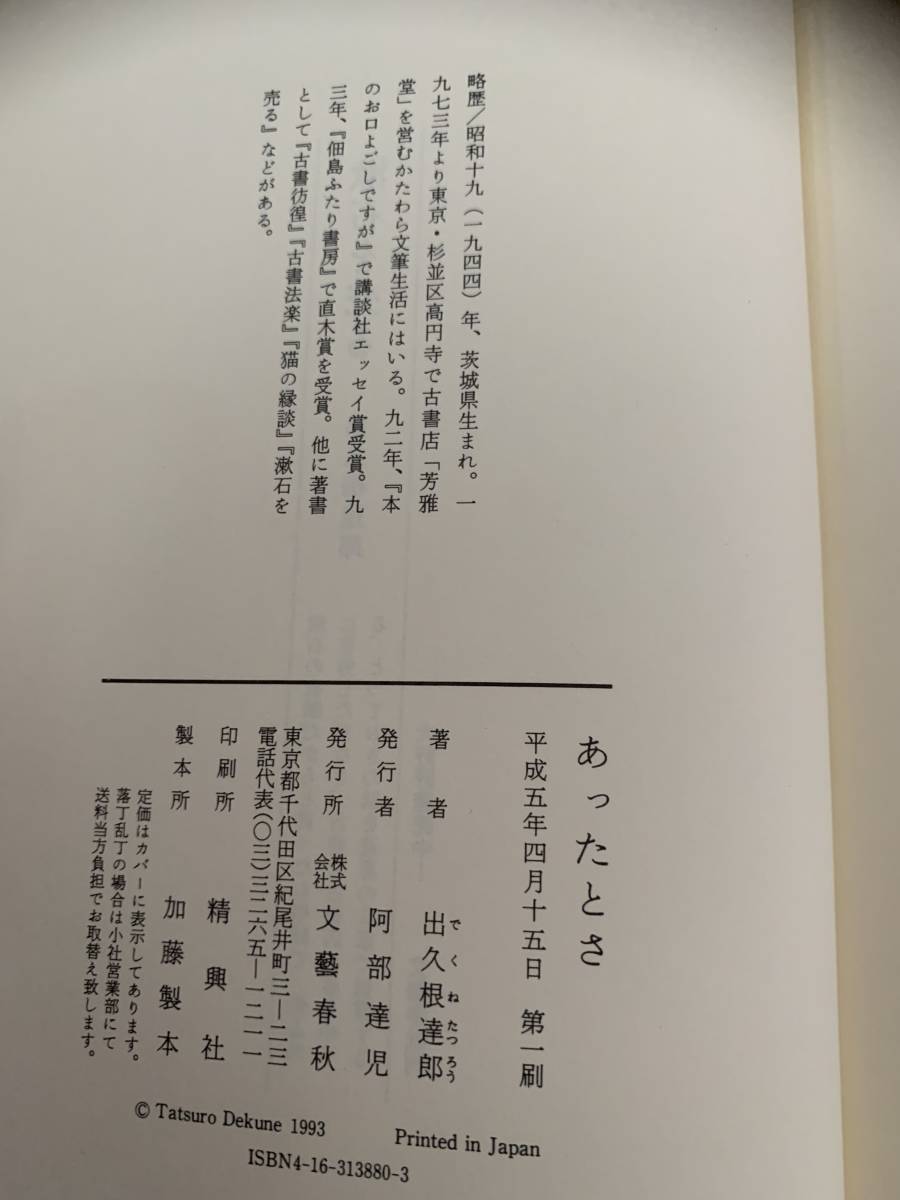 略歴/昭和十九(一九四四)年、茨城県生まれ。一
九七三年より東京・杉並区高円寺で古書店「芳雅
堂」を営むかたわら文筆生活にはいる。九二年、『本
のお口よごしですが』で講談社エッセイ賞受賞。九
三年、『佃島ふたり書房』で直木賞を受賞。他に著書
として『古書彷徨』『古書法楽』『猫の縁談』『漱石を
売る』などがある。
あったとさ
平成五年四月十五日 第一刷
著者 出久根達郎
でくねたつろう
発行者 阿部達児
発行所 株式会社 文藝春秋
東京都千代田区紀尾井町三―二三
電話代表(〇三)三二六五―一二一一
印刷所 精興社
製本所 加藤製本
定価はカバーに表示してあります。
落丁乱丁の場合は小社営業部にて
送料当方負担でお取替え致します。
© Tatsuro Dekune 1993 Printed in Japan
ISBN4-16-313880-3